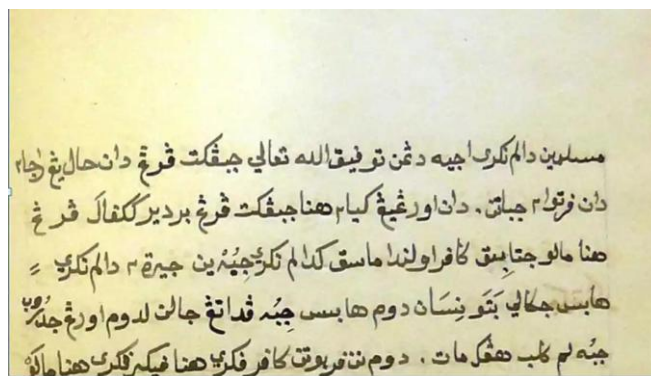 مسلمين دالم نكري اجيه دڠن توفيق الله تعالي جبڤكت ڤرڠ دان حال يڠ راجا٢
دان فرتوا٢ جباتن. دان اورڠيڠ كيا٢ هنا جبڤكت ڤرڠ برديري ككفال ڤرڠ
هنا مالو جتابيق كافر اولندا ماسق كدالم نكري جيرة٢ دالم نكري
هابس جكالي بتو نيسان دوم هابيس جبه ڤدانڠ جالن لدوم اورڠ
جبه لم كلب هڤكمات. دوم كافر فكري هنا فيكير فكري هنا مالو